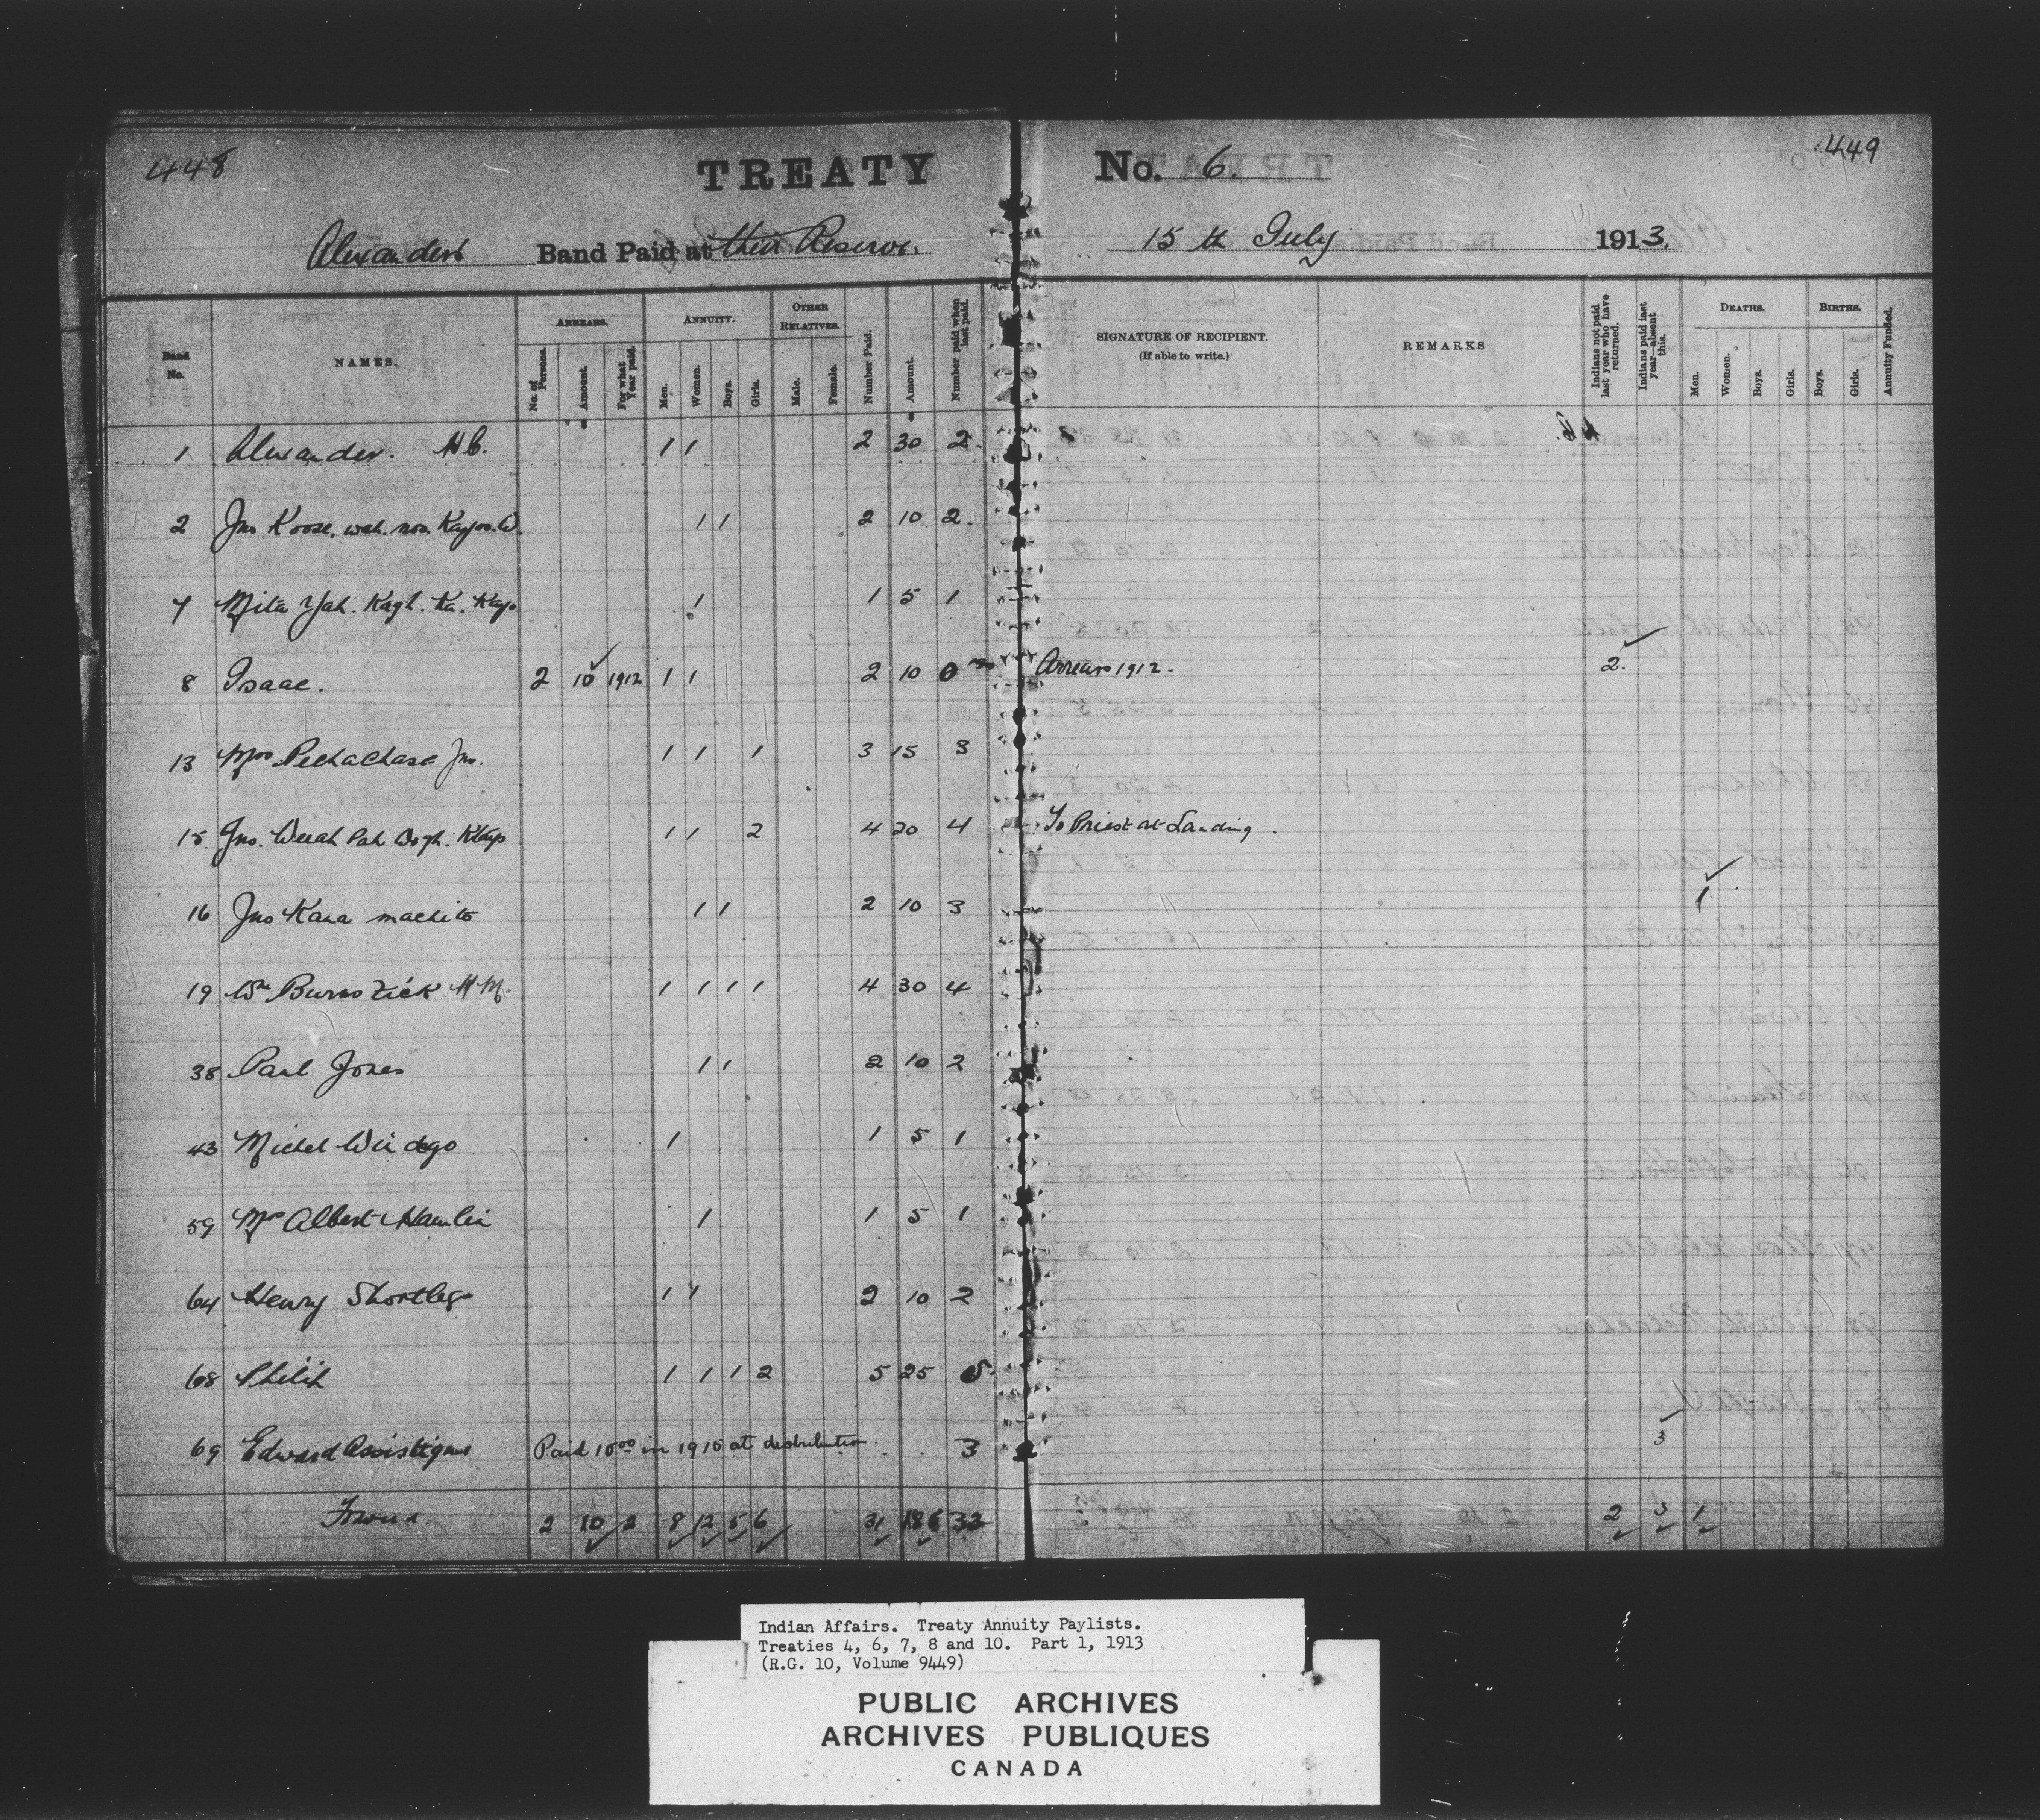 448
TREATY No. 6.
449
Alexanders Band Paid at their Reserve. 15th July 1913.
Band No. NAMES. ARREARS. ANNUITY. OTHER RELATIVES. Number Paid. Amount. Number paid when last paid. SIGNATURE OF RECIPIENT. (If able to write.) REMARKS Indians not paid last year who have returned. Indians paid last year—absent this. DEATHS. BIRTHS. Annuity Funded.
No. of Persons. Amount. For what Year paid. Men. Women. Boys. Girls. Male. Female. Men. Women. Boys. Girls. Boys. Girls.
1 Alexander. H.C. 1 1 2 30 2.
2 Jno Koose. wah. nos. Kayo. W 1 1 2 10 2.
7 Mita Yah. Kagh. Ka. Kayo 1 1 5 1
8 Isaac. 2 10 1912 1 1 2 10 0 Arrears 1912. 2.
13 Mrs Pechachase Jno. 1 1 1 3 15 3
15 Jno. Weeah Pah Wogh. Kayo 1 1 2 4 20 4 To Priest at Landing.
16 Jno Kana machito 1 1 2 10 3 1
19 Wm Burnstick H.M. 1 1 1 1 4 30 4
38 Paul Jones 1 1 2 10 2
43 Michel Windego 1 1 5 1
59 Mrs Albert Hamlin 1 1 5 1
64 Henry Shortleg 1 1 2 10 2
68 Philip 1 1 1 2 5 25 5.
69 Edward Paid 10.00 in 1910 at distribution 3 3
2 10 2 8 12 5 6 31 186 33 2 3 1
Indian Affairs. Treaty Annuity Paylists.
Treaties 4, 6, 7, 8 and 10. Part 1, 1913
(R.G. 10, Volume 9449)
PUBLIC ARCHIVES
ARCHIVES PUBLIQUES
CANADA